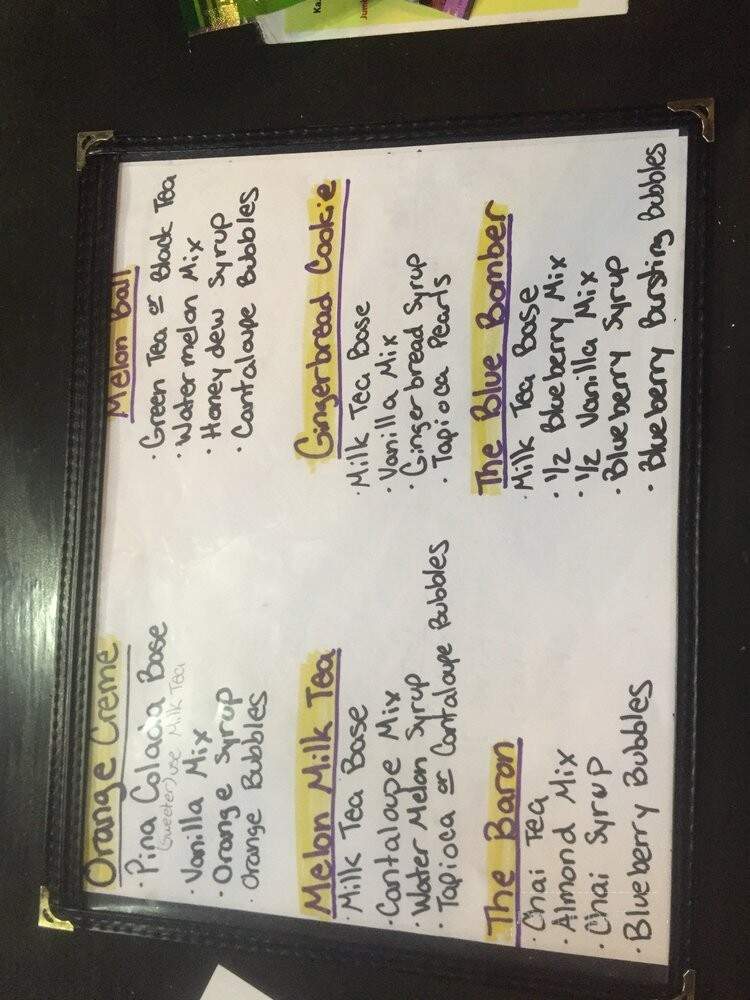 Orange Creme
· Pina Colada Base
(sweeter) use Milk Tea
· Vanilla Mix
· Orange Syrup
· Orange Bubbles
Melon Ball
· Green Tea or Black Tea
· Watermelon Mix
· Honeydew Syrup
· Cantaloupe Bubbles
Melon Milk Tea
· Milk Tea Base
· Cantaloupe Mix
· Water Melon Syrup
· Tapioca or Cantaloupe Bubbles
Gingerbread Cookie
· Milk Tea Base
· Vanilla Mix
· Gingerbread Syrup
· Tapioca Pearls
The Baron
· Chai Tea
· Almond Mix
· Chai Syrup
· Blueberry Bubbles
The Blue Bomber
· Milk Tea Base
· 1/2 Blueberry Mix
· 1/2 Vanilla Mix
· Blueberry Syrup
· Blueberry Bursting Bubbles